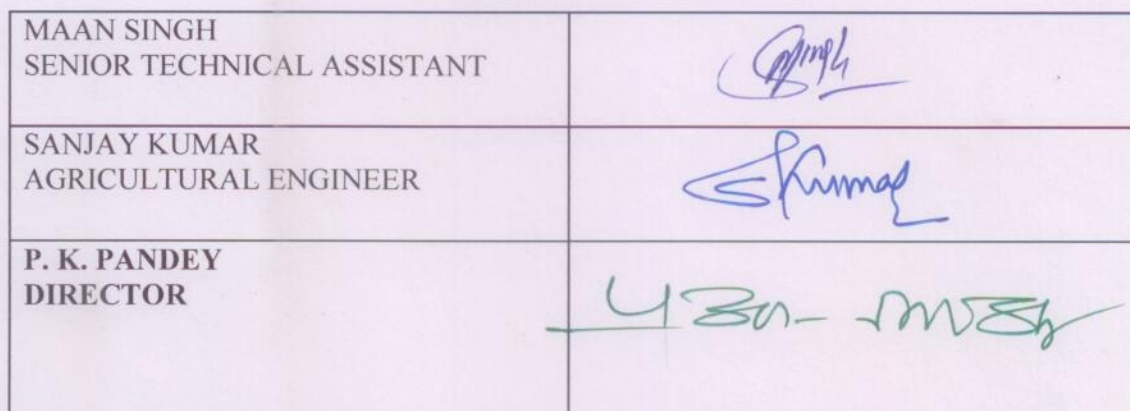 MAAN SINGH
SENIOR TECHNICAL ASSISTANT
SANJAY KUMAR
AGRICULTURAL ENGINEER
SKumar
P. K. PANDEY
DIRECTOR